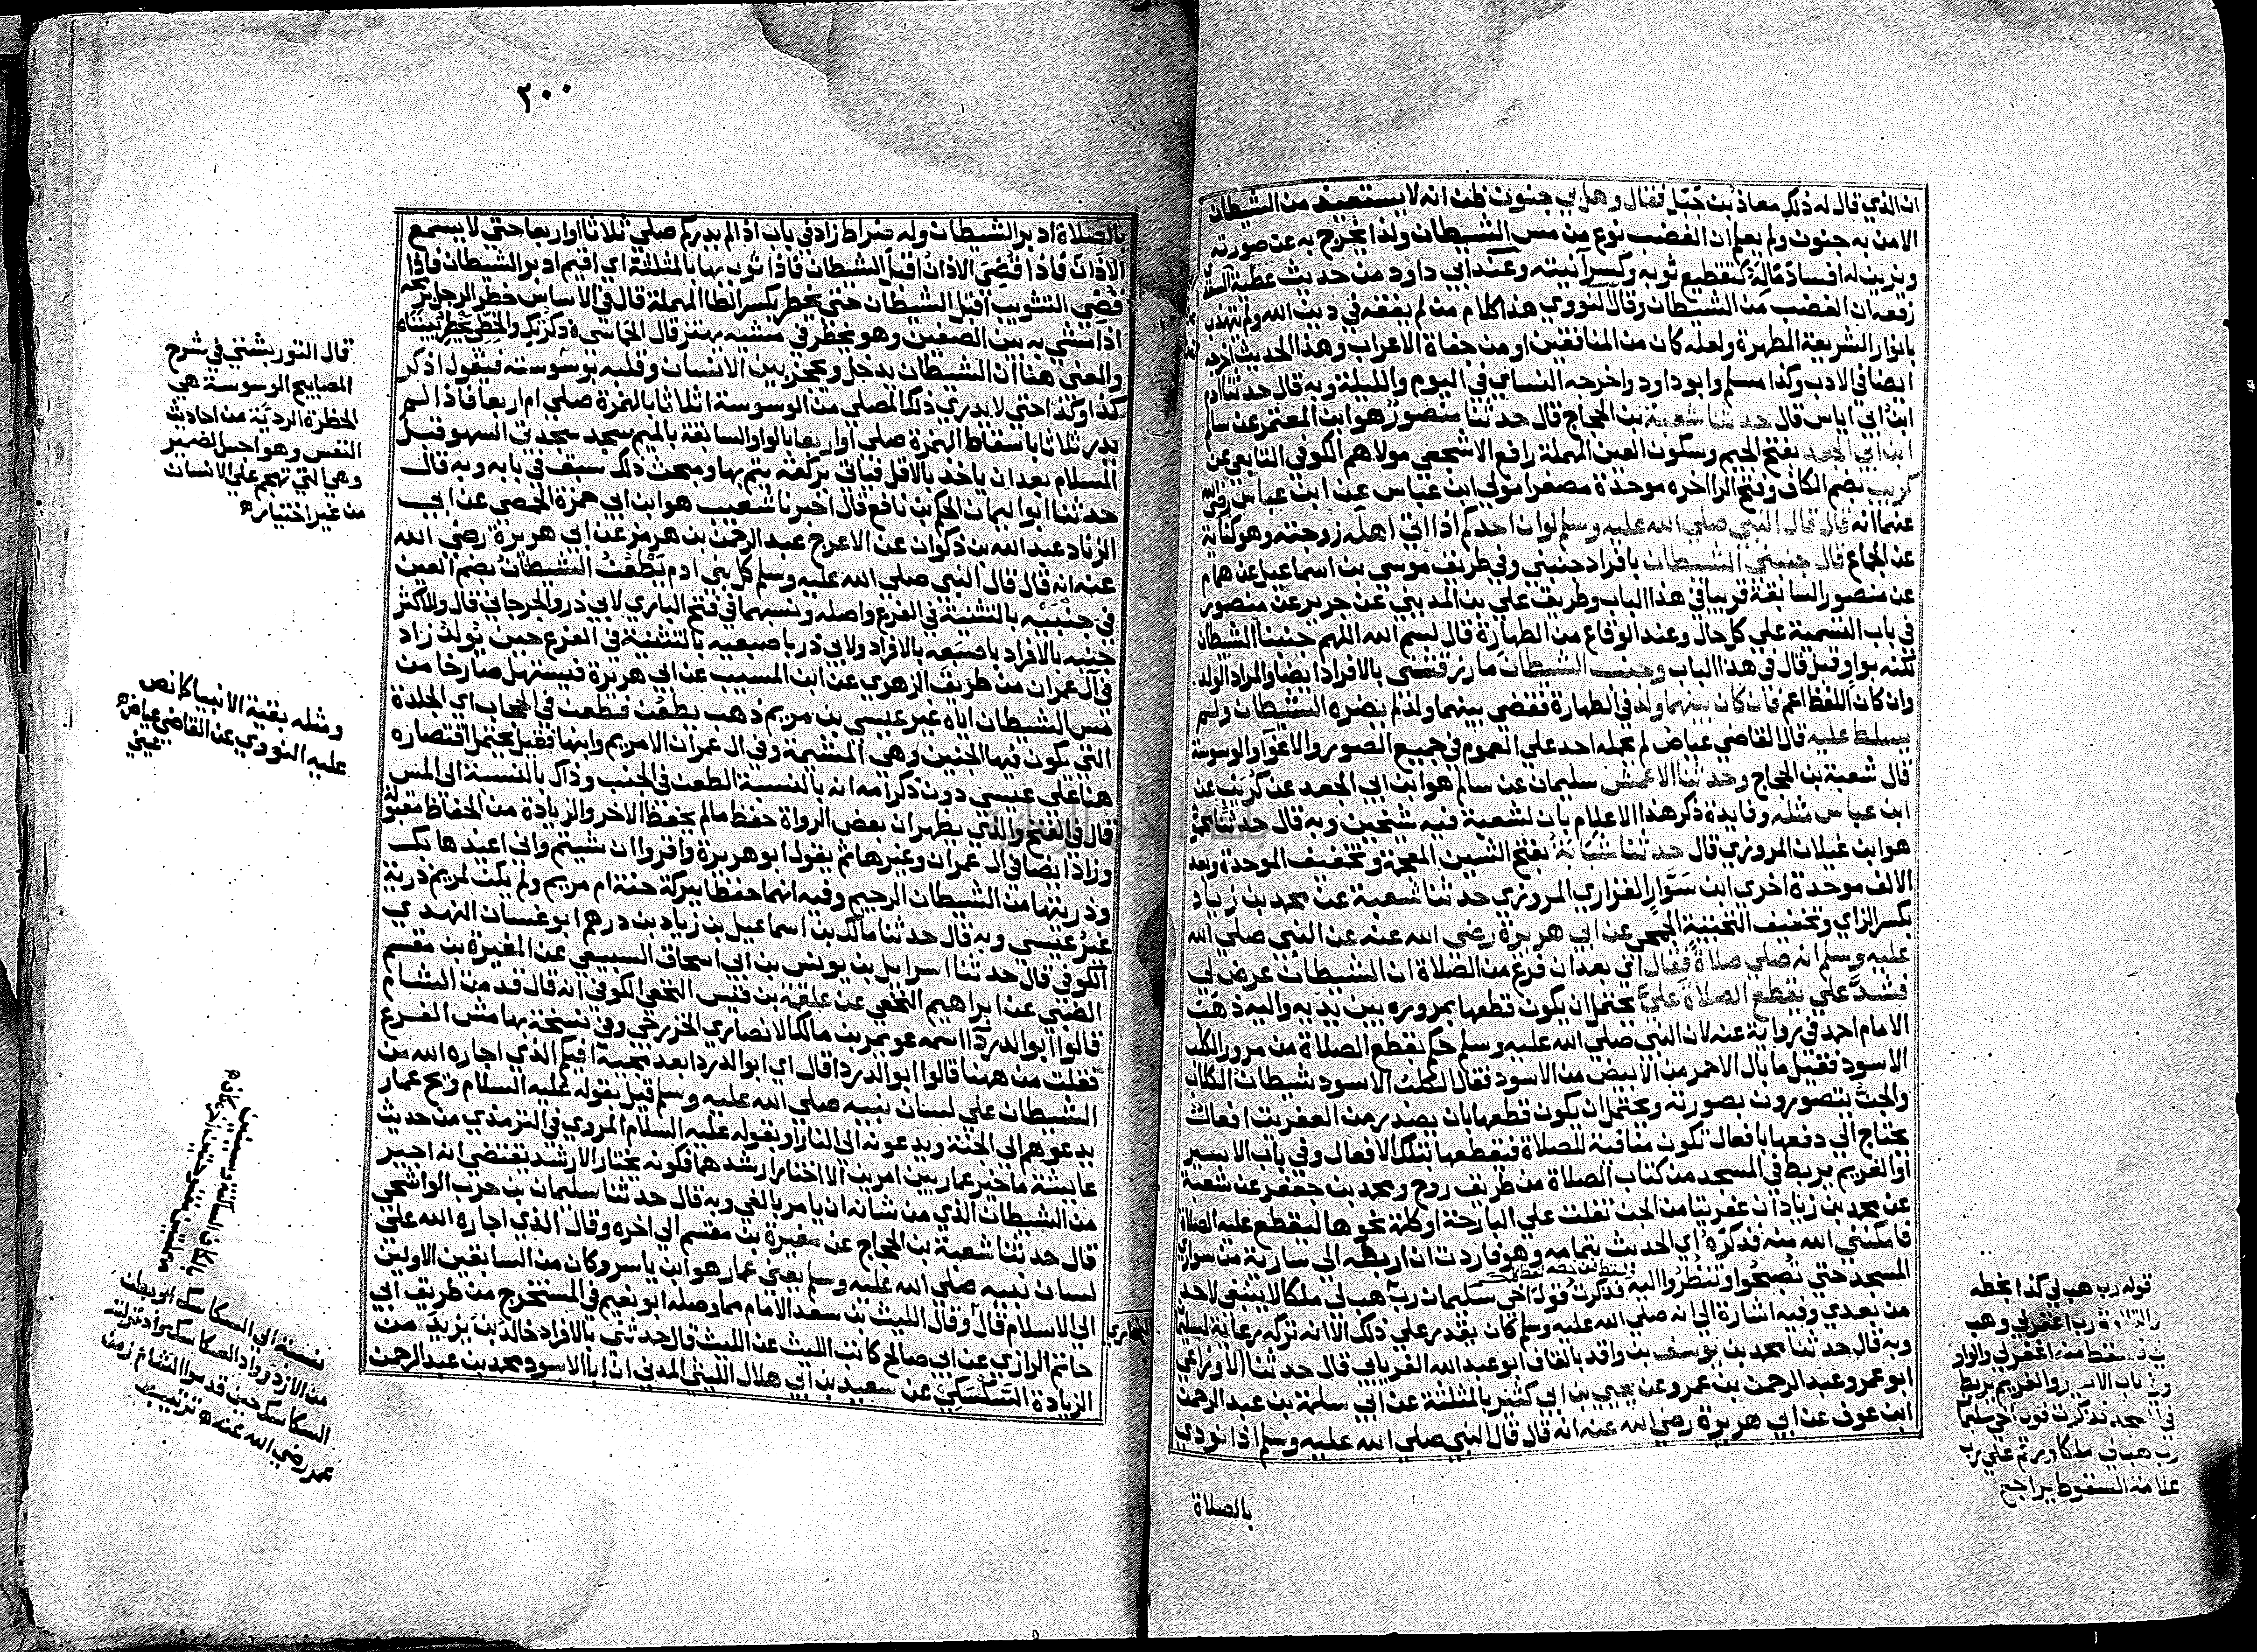 ان الذي قال له ذلك معاذ بن جبل فقال وهل بي جنون ظن انه لا يستعيذ من الشيطان
الا من به جنون ولم يعلم ان الغضب نوع من مس الشيطان ولذا يخرج به عن صورته
ويزين له افساد ماله كتقطيع ثوبه وكسر آنيته وعند ابي داود من حديث عطية السعدي
رفعه ان الغضب من الشيطان وقال النووي هذا كلام من لم يفقه في دين الله ولم يتهذب
بانوار الشريعة المطهرة ولعله كان من المنافقين او من جفاة الاعراب وهذا الحديث اخرجه
ايضا في الادب وكذا مسلم وابو داود واخرجه النساي في اليوم والليلة وبه قال حدثنا ادم
ابن ابي اياس قال حدثنا شعبة بن الحجاج قال حدثنا منصور هو ابن المعتمر عن سالم
ابن ابي الجعد بفتح الجيم وسكون العين المهملة رافع الاشجعي مولاهم الكوفي التابعي عن
كريب بضم الكاف وفتح الرا اخره موحدة مصغرا مولى ابن عباس عن ابن عباس رضي الله
عنهما انه قال قال النبي صلي الله عليه وسلم لو ان احدكم اذا اتي اهله زوجته وهو كناية
عن الجماع قال جنبني الشيطان بافراد جنبني وفي طريف موسي بن اسماعيل عن همام
عن منصور السابقة قريبا في هذا الباب وطريف علي بن المديني عن جرير عن منصور
في باب التسمية علي كل حال وعند الوقاع من الطهارة قال بسم الله اللهم جنبنا الشيطان
لكنه بواو قبل قال في هذا الباب وجنب الشيطان ما رزقتني بالافراد ايضا والمراد الولد
وان كان اللفظ اعم فان كان بينهما ولد في الطهارة فقضي بينهما ولد لم يضره الشيطان ولم
يسلط عليه قال القاضي عياض لم يحمله احد علي العموم في جميع الصور والاغوآ والوسوسة
قال شعبة بن الحجاج وحدثنا الاعمش سليمان عن سالم هو ابن ابي الجعد عن كريب عن
ابن عباس مثله وفايدة ذكر هذا الاعلام بان لشعبة فيه شيخين وبه قال حدثنا محمود
هو ابن غيلان المروزي قال حدثنا شبابة بفتح الشين المعجمة وتخفيف الموحدة وبعد
الالف موحدة اخري ابن سوار الفزاري المروزي حدثنا شعبة عن محمد بن زياد
بكسر الزاي وتخفيف التحتية الجمحي عن ابي هريرة رضي الله عنه عن النبي صلي الله
عليه وسلم انه صلي صلاة فقال اي بعد ان فرغ من الصلاة ان الشيطان عرض لي
فشد علي يقطع الصلاة علي يحتمل ان يكون قطعها بمروره بين يديه واليه ذهب
الامام احمد في رواية عنه لان النبي صلي الله عليه وسلم حكم بقطع الصلاة من مرور الكلب
الاسود فقيل ما بال الاحمر من الابيض من الاسود فقال الكلب الاسود شيطان الكلاب
والجن يتصورون بصورته ويحتمل ان يكون قطعها بان يصدر من العفريت افعال
يحتاج الي دفعها بافعال تكون منافية للصلاة فيقطعها بتلك الافعال وفي باب الاسير
او الغريم يربط في المسجد من كتاب الصلاة من طريف روح ومحمد بن جعفر عن شعبة
عن محمد بن زياد ان عفريتا من الجن تفلت علي البارحة او كلمة نحوها ليقطع علي الصلاة
فامكنني الله منه فذكره اي الحديث بتمامه وهو فاردت ان اربطه الي سارية من سواري
المسجد حتي تصبحوا وتنظروا اليه فذكرت قول اخي سليمان رب هب لي ملكا لا ينبغي لاحد
من بعدي وفيه اشارة الي انه صلي الله عليه وسلم كان يقدر علي ذلك الا انه تركه رعاية لسليمان
وبه قال حدثنا محمد بن يوسف بن واقد بالفا ابو عبد الله الفريابي قال حدثنا الاوزاعي
ابو عمرو عبد الرحمن بن عمرو عن يحيي بن ابي كثير بالمثلثة عن ابي سلمة بن عبد الرحمن
ابن عوف عن ابي هريرة رضي الله عنه انه قال قال النبي صلي الله عليه وسلم اذا نودي
بالصلاة
قوله رب هب لي كذا بخطه
رب اغفر لي وهب
باب الاسير والغريم يربط
فذكرت قول اخي سليمان
رب هب لي ملكا ورقم علي رب
علامة السقوط يراجع
٣٠٠
بالصلاة ادبر الشيطان وله ضراط زاد في باب اذا لم يدر كم صلي ثلاثا او اربعا حتي لا يسمع
الاذان فاذا قضي الاذان اقبل الشيطان فاذا ثوب بها بالمثلثة اي اقيم ادبر الشيطان فاذا
قضي التثويب اقبل الشيطان حتي يخطر بكسر الطا المهملة قال في الاساس خطر الرجل برمحه
اذا مشي به بين الصفين وهو يخطر في مشيه يهتز قال الحماسي ذكرتك والخطي يخطر بيننا
والمعني هنا ان الشيطان يدخل ويحجز بين الانسان وقلبه بوسوسته فيقول اذكر
كذا وكذا حتي لا يدري ذلك المصلي من الوسوسة اثلاثا بالهمزة صلي ام اربعا فاذا لم
يدر ثلاثا باسقاط الهمزة صلي او اربعا بالواو والسابقة بالميم سجد سجدتي السهو قبل
السلام بعد ان ياخذ بالاقل فياتي بركعة يتم بها ومبحث ذلك سبق في بابه وبه قال
حدثنا ابو اليمان الحكم بن نافع قال اخبرنا شعيب هو ابن ابي حمزة الحمصي عن ابي
الزناد عبد الله بن ذكوان عن الاعرج عبد الرحمن بن هرمز عن ابي هريرة رضي الله
عنه انه قال قال النبي صلي الله عليه وسلم كل بني ادم يطعن الشيطان بضم العين
في جنبيه بالتثنية في الفرع واصله ونسبهما في فتح الباري لابي ذر والجرجاني قال وللاكثر
جنبه بالافراد باصبعه بالافراد ولابي ذر باصبعيه بالتثنية في الفرع حين يولد زاد
في آل عمران من طريق الزهري عن ابن المسيب عن ابي هريرة فيستهل صارخا من
مس الشيطان اياه غير عيسي بن مريم ذهب يطعن فطعن في الحجاب اي الجلدة
التي يكون فيها الجنين وهي المشيمة وفي ال عمران الا مريم وابنها فقيل يحتمل اقتصاره
هنا علي عيسي دون ذكر امه انه بالنسبة الطعن في الجنب وذاك بالنسبة الي المس
قال في الفتح والذي يظهر ان بعض الرواة حفظ ما لم يحفظ الاخر والزيادة من الحفاظ مقبولة
وزاد ايضا في ال عمران وغيرها ثم يقول ابو هريرة واقروا ان شيتم واني اعيذها بك
وذريتها من الشيطان الرجيم وفيه انهما حفظا ببركة حنة ام مريم ولم يكن لمريم ذرية
غير عيسي وبه قال حدثنا مالك بن اسماعيل بن زياد بن درهم ابو غسان النهدي
الكوفي قال حدثنا اسرايل بن يونس بن ابي اسحاق السبيعي عن المغيرة بن مقسم
الضبي عن ابراهيم النخعي عن علقمة بن قيس النخعي الكوفي انه قال قدمت الشام
قالوا ابو الدردآ اسمه عويمر بن مالك الانصاري الخزرجي وفي نسخة بهامش الفرع
فقلت من ههنا قالوا ابو الدردا قال اي ابو الدردا بعد مجيئه افيكم الذي اجاره الله من
الشيطان علي لسان نبيه صلي الله عليه وسلم قيل بقوله عليه السلام ويح عمار
يدعوهم الي الجنة ويدعونه الي النار او بقوله عليه السلام المروي في الترمذي من حديث
عايشة ما خير عمار بين امرين الا اختار ارشدهما فكونه يختار الارشد يقتضي انه اجير
من الشيطان الذي من شانه ان يامر بالغي وبه قال حدثنا سليمان بن حرب الواشحي
قال حدثنا شعبة بن الحجاج عن مغيرة بن مقسم الي اخره وقال الذي اجاره الله علي
لسان نبيه صلي الله عليه وسلم يعني عمار هو ابن ياسر وكان من السابقين الاولين
الي الاسلام قال وقال الليث بن سعد الامام مما وصله ابو نعيم في المستخرج من طريق ابي
حاتم الرازي عن ابي صالح كاتب الليث عن الليث قال حدثني بالافراد خالد بن يزيد من
الزيادة السكسكي عن سعيد بن ابي هلال الليثي المدني ان ابا الاسود محمد بن عبد الرحمن
البخاري
قال التوربشتي في شرح
المصابيح الوسوسة هي
الخطرة الردية من احاديث
النفس وهواجس الضمير
وهي التي تهجم علي الانسان
من غير اختياره
ومثله بقية الانبيا كما نص
عليه النووي عن القاضي عياض
عيني
نسبة الي السكاسك
من الازد
السكاسك حين قدموا الشام زمن
عمر رضي الله عنه